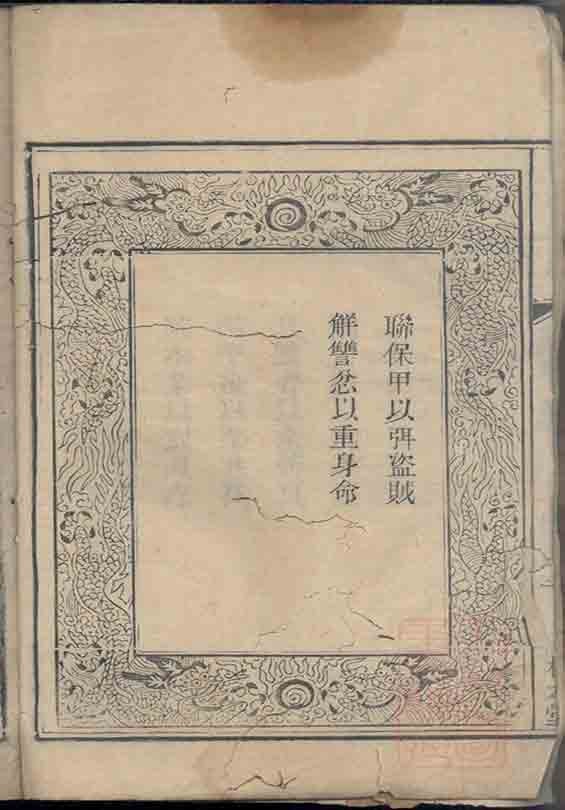 聯保甲以弭盜賊
解讐忿以重身命